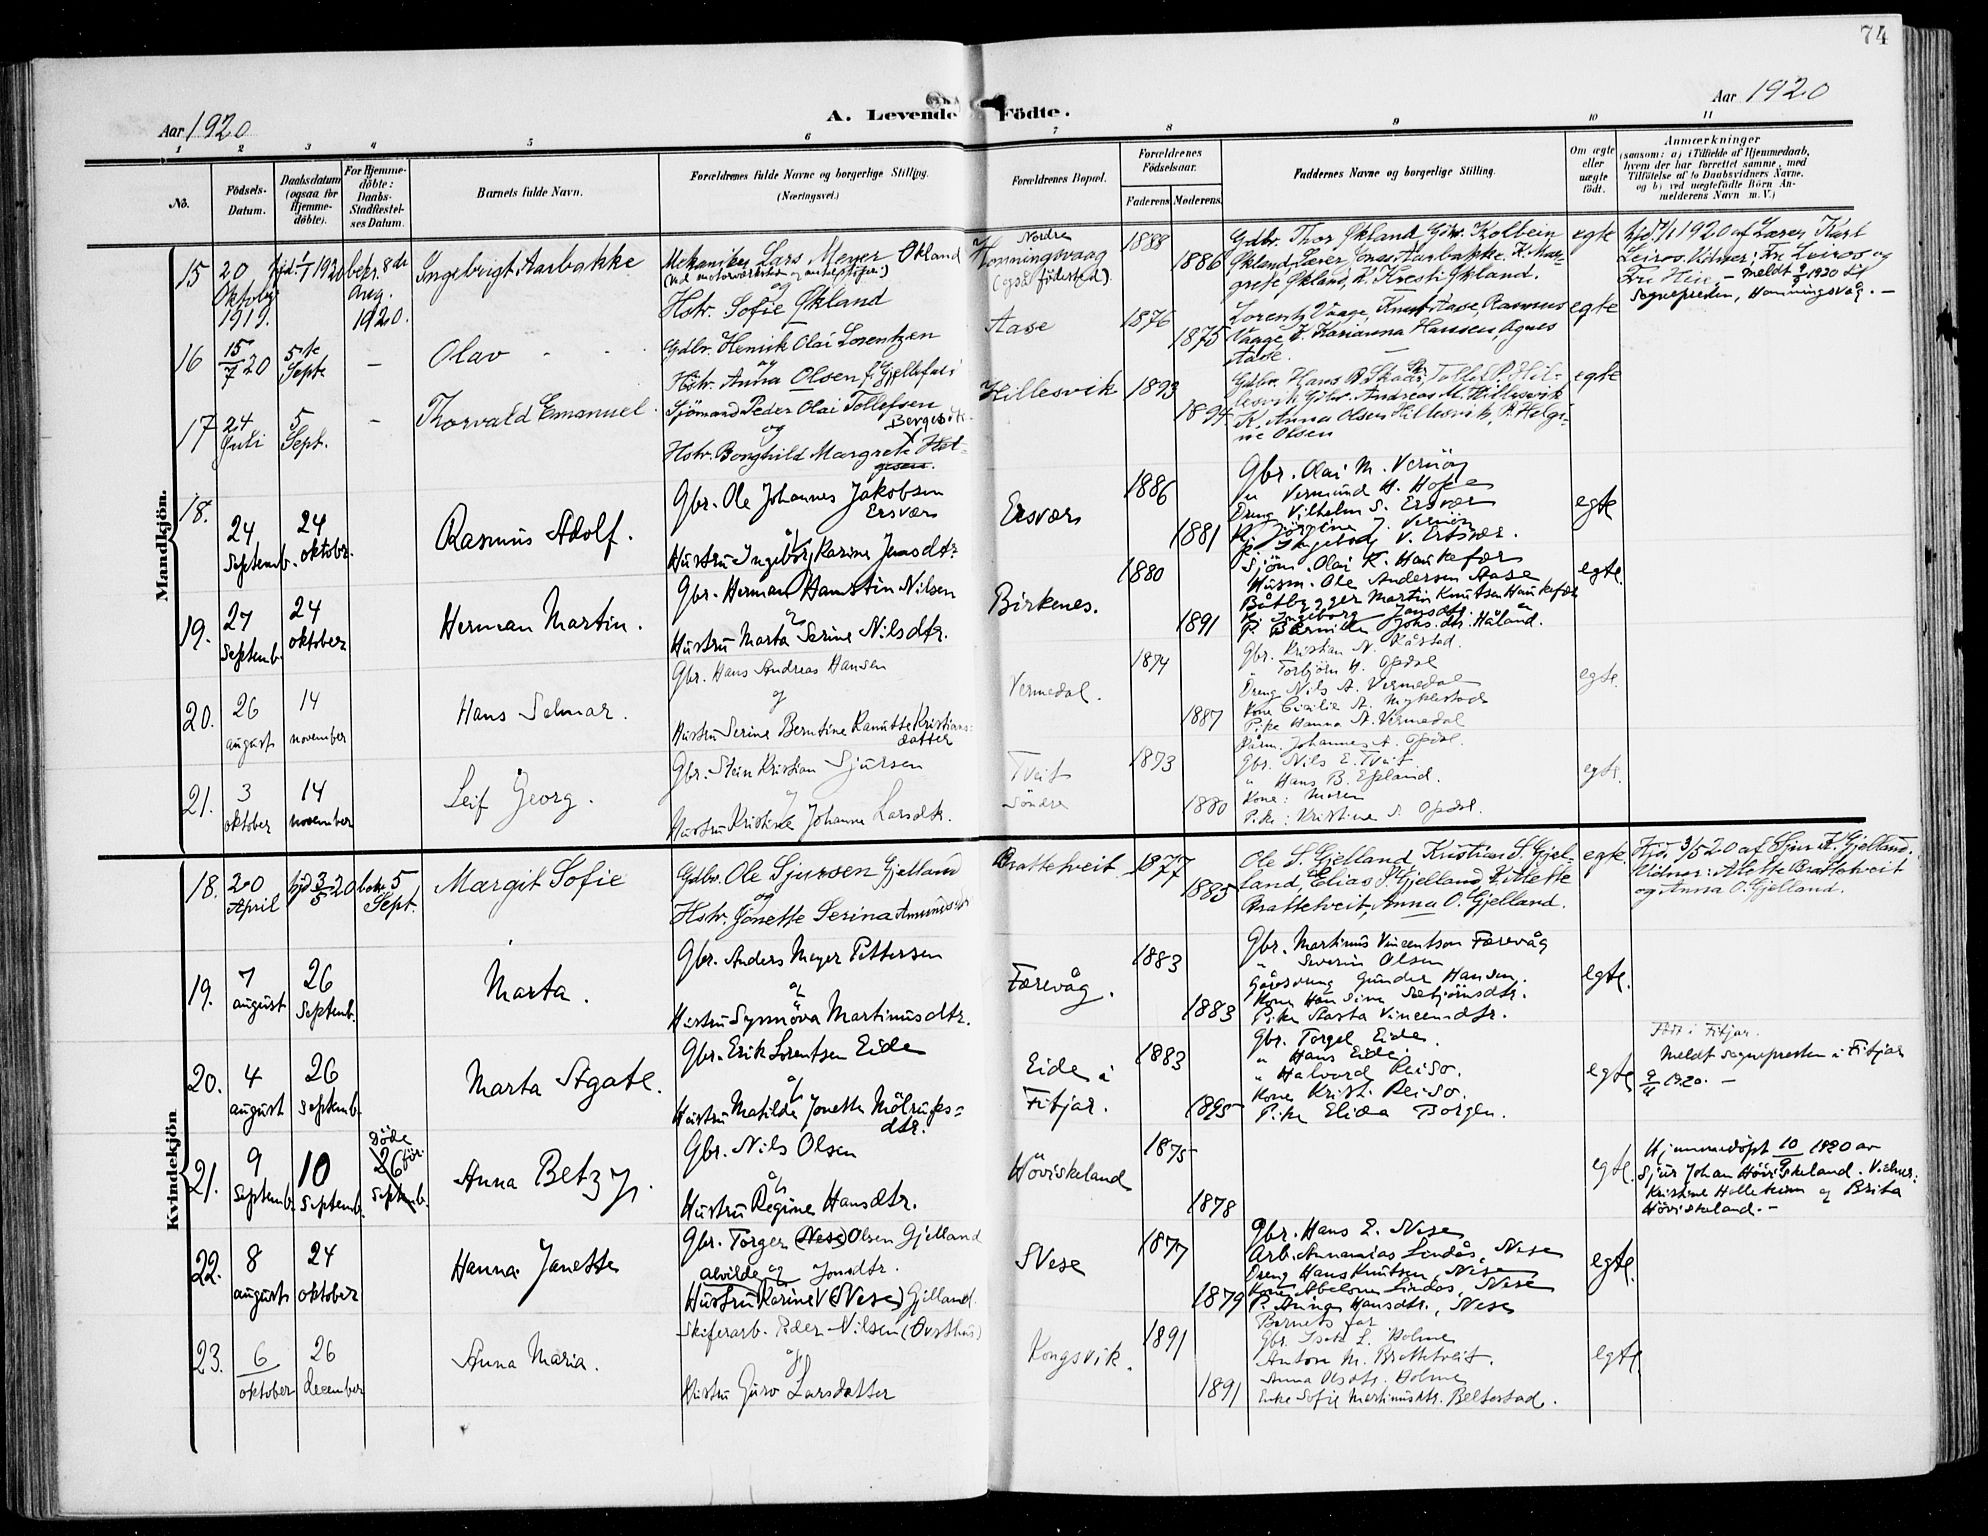 74
Aar 1920
A. Levende Födte.
Aar 1920
1 2 3 4 5 6 7 8 9 10 11
No.
Födsels-Datum.
Daabsdatum (ogsaa for Hjemme-döbte).
For Hjemme-döbte: Daabs-Stadfæstel-ses Datum.
Barnets fulde Navn.
Forældrenes fulde Navne og borgerlige Stilling. (Næringsvei.)
Forældrenes Bopæl.
Forældrenes Födselsaar.
Faderens Moderens.
Faddernes Navne og borgerlige Stilling.
Om ægte eller uægte födt.
Anmærkninger
(saasom: a) i Tilfælde af Hjemmedaab, hvem der har forrettet samme, med Tilföielse af to Daabsvidners Navne, og b) ved uægtefödte Börn Anmelderens Navn m. V.)
Mandkjön.
15 20 Oktober 1919. hjd 1/1 1920 1920. Ingebrigt Aarbakke
Mekaniker Lars Meyer Økland
og
Hstr. Sofie Økland
Nordre Honningsvaag (også födested)
1888 1886
Gdbr. Thor Økland Gdbr. Kolbein
Økland, Lærer Jonas Aarbakke. K. Mar-
grete Økland, K. Kresti Økland.
egte
hjd 1/1 1920 af Lærer Karl
Leiros. Vidner: Fru Leiros og
Sognepresten, Honningsvåg. —
16 15/7 20 5te Septe — Olav
Gdbr. Henrik Olai Lorentzen
og
Hstr. Anna Olsen
Aase 1876 1875
Lorentz Vaage, Knut Aase, Rasmus
Vaage, K. Karianna Hansen, Agnes
Aase.
egte
17 24 Juli 5 Sept. — Thorvald Emanuel
Sjömand Peder Olai Tollefsen
og
Hstr. Borghild Margrete Hel-
gesen.
Hillesvik 1893 1894
lesvik Gdbr. Andreas M. Hillesvik
K. Anna Olsen Hillesvik, P. Helgi-
ne Olsen
egte
18. 24 Septemb. 24 oktobr. Rasmus Adolf.
Gbr. Ole Johannes Jakobsen
Ersvær
og
Hustru Ingeborg Karine Jensdtr.
Ersvær 1886 1881
Gbr. Olai M. Vernöy
" Vermund H. Hope
Dreng Vilhelm S. Ersvær
K. Jörgine J. Vernöy
P. Ingeborg V. Ersvær.
egte
19. 27 Septemb. 24 oktober Herman Martin.
Gbr. Herman Hanstin Nilsen
og
Hustru Marta Serine Nilsdtr.
Birkenes. 1880 1891
Sjöm. Olai K. Haukefær
Husm. Ole Andersen Aase
Båtbygger Martin Knutsen Haukefær
K. Ingeborg Jansdtr.
Johs.dtr. Håland.
egte
20. 26 august 14 november Hans Selmar.
Gbr. Hans Andreas Hansen
og
Hustru Serine Berntine Kanutte Kristians-
datter
Vermedal. 1874 1887
Gbr. Kristian N. Kårstad.
" Torbjörn H. Opdal
Dreng Nils A. Vermedal
Kone Cicilie A. Myklestad
Pike Hanna A. Vermedal
egte.
21. 3 oktober 14 november Leif Georg.
Gbr. Stein Kristian Sjursen
og
Hustru Kristine Johanne Larsdtr.
Tveit Söndre 1873 1880
Johannes A. Opdal.
Gbr. Nils E. Tveit
" Hans B. Epland.
Kone: Moren
Pike: Kristine S. Opdal.
egte.
Kvindekjön
18. 20 April hjd 3/5 20 5 Sept. Margit Sofie
Gdbr. Ole Sjursen Gjelland
og
Hstr. Jonette Serina
Brattetveit 1877 1885
Ole S. Gjelland, Kristian S. Gjel-
land, Elias S. Gjelland, K. Alette
Brattetveit, Anna O. Gjelland.
egte
Hjd. 3/5 20 af Sjur Gjelland.
Vidner: Alette Brattetveit
og Anna O. Gjelland.
19. 7 august 26 Septemb. Marta.
Gbr. Anders Meyer Pettersen
og
Hustru Synnöva Martinusdtr.
Færevåg. 1883 1883
Gbr. Martinus Vincentsen Færevåg
" Severin Olsen
Gårdsdreng Gunder Hansen.
Kone Hansine
Pike Marta Vincensdtr.
egte.
20. 4 august 26 Septemb. Marta Agate.
Gbr. Erik Lorentsen Eide
og
Hustru Matilde Jonette Mölrups-
dtr.
Eide i Fitjar. 1883 1895
Gbr. Torgel Eide.
" Hans Eide
" Halvard Reisö.
Kone Krist. Reisö.
Pike Elida Borgen.
egte
Födt i Fitjar.
Meldt sognepresten i Fitjar
1920. —
21. 9 Septemb. 10 Septemb. Döde för 26 Septemb. Anna Betzy.
Gbr. Nils Olsen
og
Hustru Regine Hansdtr.
Höviskeland 1875 1878
egte.
Hjemmedöpt 10/9 1920 av
Sjur Johan Höviskeland. Vidner:
Kristine Helleheim og Brita
Höviskeland. —
22. 8 august 24 oktober Hanna Janette
Gbr. Torger (Nese) Olsen Gjelland
Alvilde og Jonsdtr.
Hustru Karine (Nese) Gjelland.
Nese 1877 1879
Gbr. Hans E. Nese
Arb. Annanias Lindås, Nese
Dreng Hans Knutsen, Nese
Kone Abelone Lindås, Nese
P. Anna Hansdtr., Nese
egte.
23. 6 oktober 26 december Anna Maria.
Skiferarb. Peder Nilsen (Øvsthus)
og
Hustru Guro Larsdatter
Kongsvik. 1891 1891
Barnets far
Gbr. Isak L. Holme
Anton M. Brattetveit.
Anna Olsdtr. Holme
Enke Sofie Martinusdtr. Beltestad.
egte